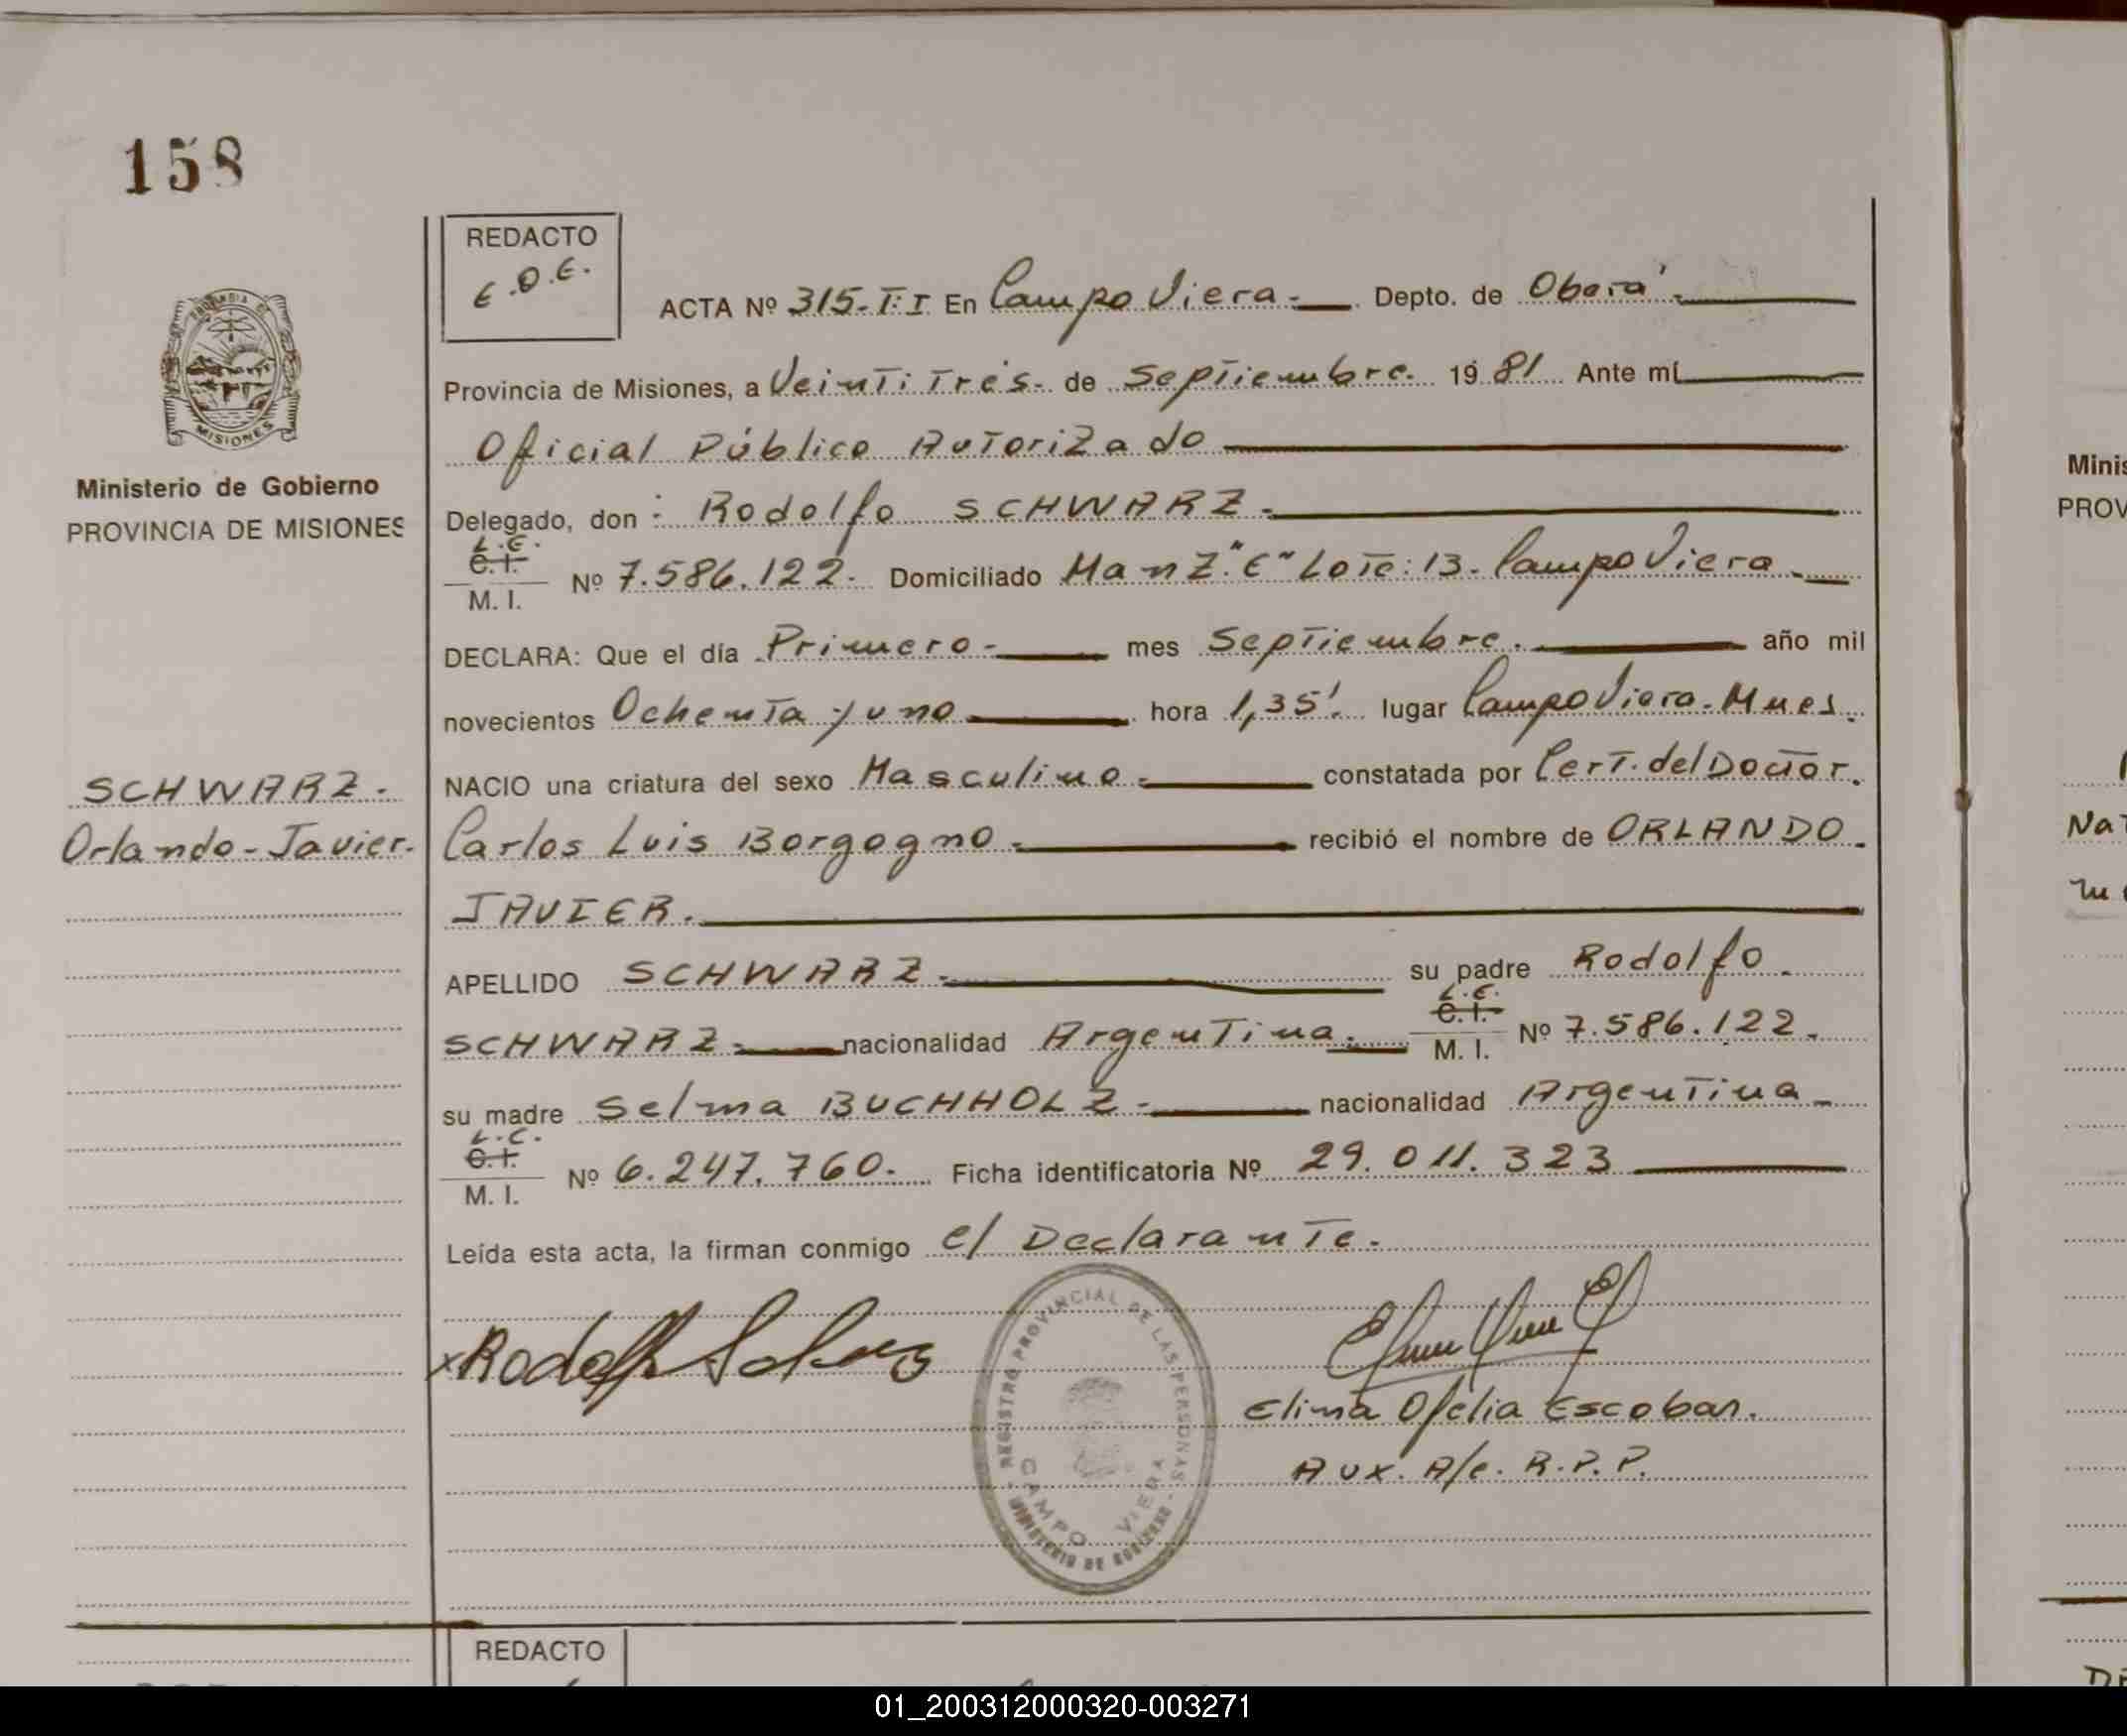 158
REDACTO
E.O.E.
ACTA Nº 315-T:I En Campo Viera.- Depto. de Oberá.-
Provincia de Misiones, a Veintitrés.- de Septiembre. 1981 Ante mí
Oficial Público Autorizado
Delegado, don: Rodolfo SCHWARZ.-
L.E.
C.I.
M. I.
Nº 7.586.122.- Domiciliado Manz."E" Lote:13.- Campo Viera.-
DECLARA: Que el día Primero.- mes Septiembre. año mil
novecientos Ochenta y uno hora 1,35'. lugar Campo Viera. Mnes.
NACIO una criatura del sexo Masculino.- constatada por Cert. del Doctor.
Carlos Luis Borgogno.- recibió el nombre de ORLANDO.
JAVIER.
APELLIDO SCHWARZ.- su padre Rodolfo.
L.E.
C.I.
M. I.
SCHWARZ.- nacionalidad Argentina.- Nº 7.586.122.
su madre Selma BUCHHOLZ.- nacionalidad Argentina.-
L.C.
C.I.
M. I.
Nº 6.247.760.- Ficha identificatoria Nº 29.011.323
Leída esta acta, la firman conmigo el Declarante.-
x Rodolfo
Elima Ofelia Escobar.
Aux. A/c. R.P.P.
REGISTRO PROVINCIAL DE LAS PERSONAS
CAMPO VIERA
MINISTERIO DE GOBIERNO
PROVINCIA DE
MISIONES
Ministerio de Gobierno
PROVINCIA DE MISIONES
SCHWARZ.-
Orlando-Javier.
REDACTO
Minis
PROV
Na
01_200312000320-003271